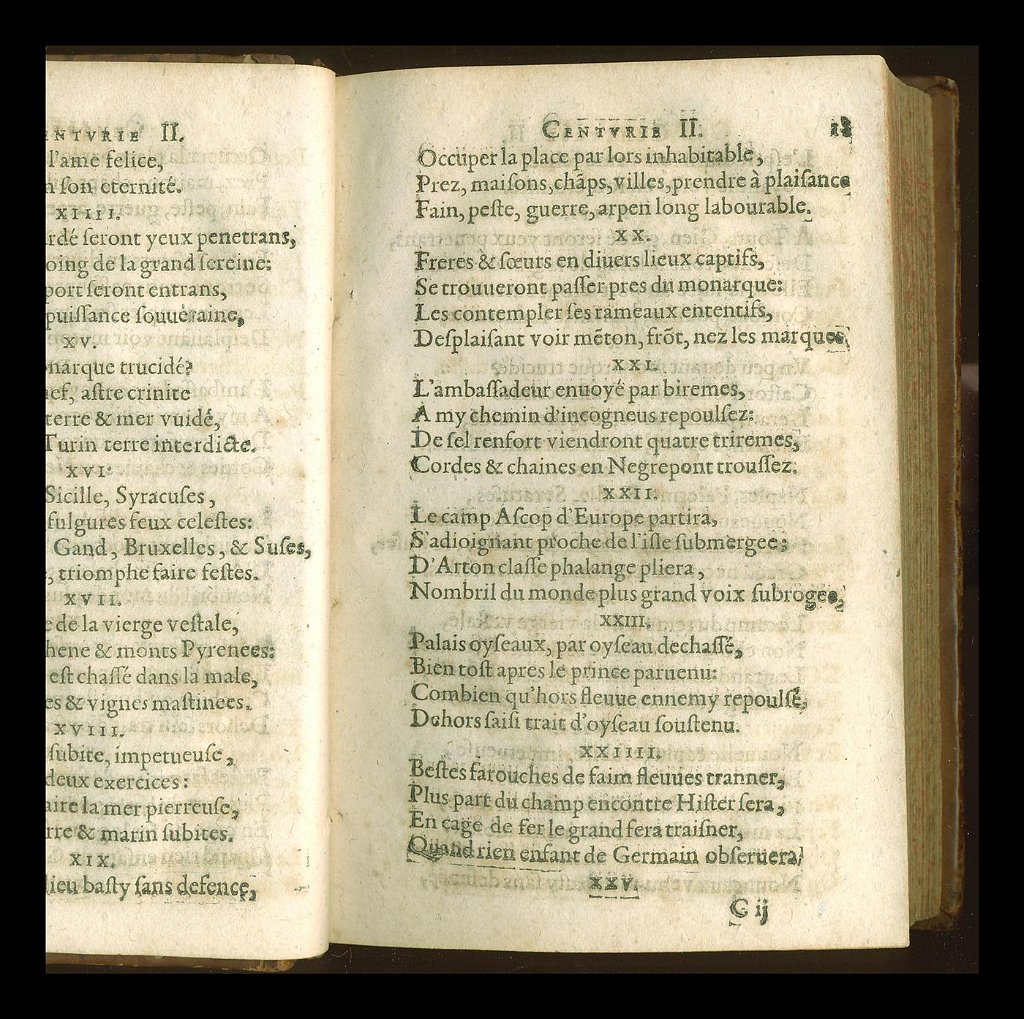 ENTVRIE II.
l'ame felice,
n ſoin eternité.
XIIII.
rdé ſeront yeux penetrans,
oing de la grand ſereine:
port ſeront entrans,
puiſſance ſouueraine,
XV.
narque trucidé?
nef, aſtre crinite
terre & mer vuidé,
Turin terre interdicte.
XVI.
Sicille, Syracuſes,
fulgures feux celeſtes:
Gand, Bruxelles, & Suſes,
, triomphe faire feſtes.
XVII.
e de la vierge veſtale,
hene & monts Pyrenees:
eſt chaſſé dans la male,
es & vignes maſtinees.
XVIII.
ſubite, impetueuſe,
deux exercices:
aire la mer pierreuſe,
rre & marin ſubites.
XIX.
lieu baſty ſans defence,
CENTVRIE II.
Occuper la place par lors inhabitable,
Prez, maiſons, chãps, villes, prendre à plaiſance
Fain, peſte, guerre, arpen long labourable.
XX.
Freres & ſœurs en diuers lieux captifs,
Se trouueront paſſer pres du monarque:
Les contempler ſes rameaux ententifs,
Deſplaiſant voir mẽton, frõt, nez les marques.
XXI.
L'ambaſſadeur enuoyé par biremes,
A my chemin d'incogneus repoulſez:
De ſel renfort viendront quatre triremes,
Cordes & chaines en Negrepont trouſſez.
XXII.
Le camp Aſcop d'Europe partira,
S'adioignant proche de l'iſle ſubmergee:
D'Arton claſſe phalange pliera,
Nombril du monde plus grand voix ſubrogee,
XXIII.
Palais oyſeaux, par oyſeau dechaſſé,
Bien toſt apres le prince paruenu:
Combien qu'hors fleuue ennemy repoulſé,
Dehors ſaiſi trait d'oyſeau ſouſtenu.
XXIIII.
Beſtes farouches de faim fleuues tranner,
Plus part du champ encontre Hiſter ſera,
En cage de fer le grand fera traiſner,
Quand rien enfant de Germain obſeruera,
XXV.
G ij